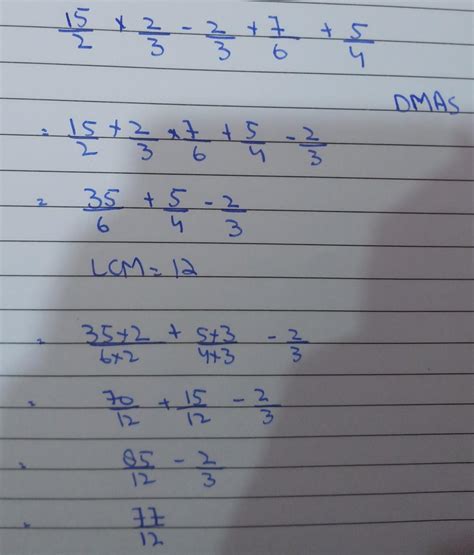 15/2 × 2/3 - 2/3 + 7/6 + 5/4
DMAS
= 15/2 + 2/3 × 7/6 + 5/4 - 2/3
= 35/6 + 5/4 - 2/3
LCM = 12
= 35×2/6×2 + 5×3/4×3 - 2/3
= 70/12 + 15/12 - 2/3
= 85/12 - 2/3
= 77/12